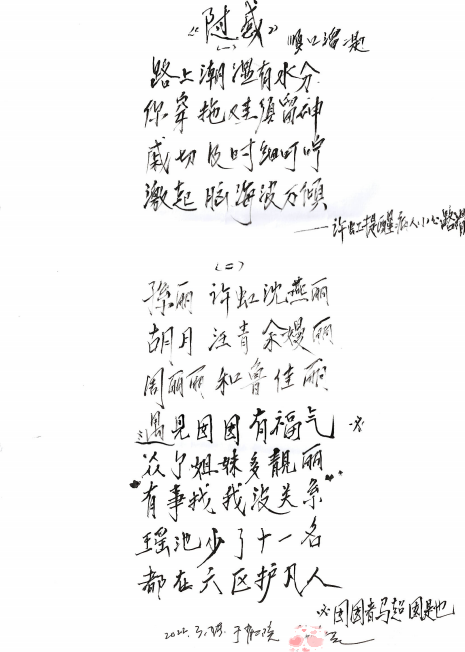 《随感》 顺口溜二题
(一)
路上潮湿有水分
你穿拖鞋须留神
感切及时细叮咛
激起脑海波万倾
——许虹提醒病人小心路滑
(二)
孙丽 许虹沈燕丽
胡月 汪青 余嫚丽
周丽丽 和鲁佳丽
遇见团团有福气
众了姐妹多靓丽
有事找我没关系
瑶池少了十一名
都在六区护凡人
团团者马超团是也
2022.3.